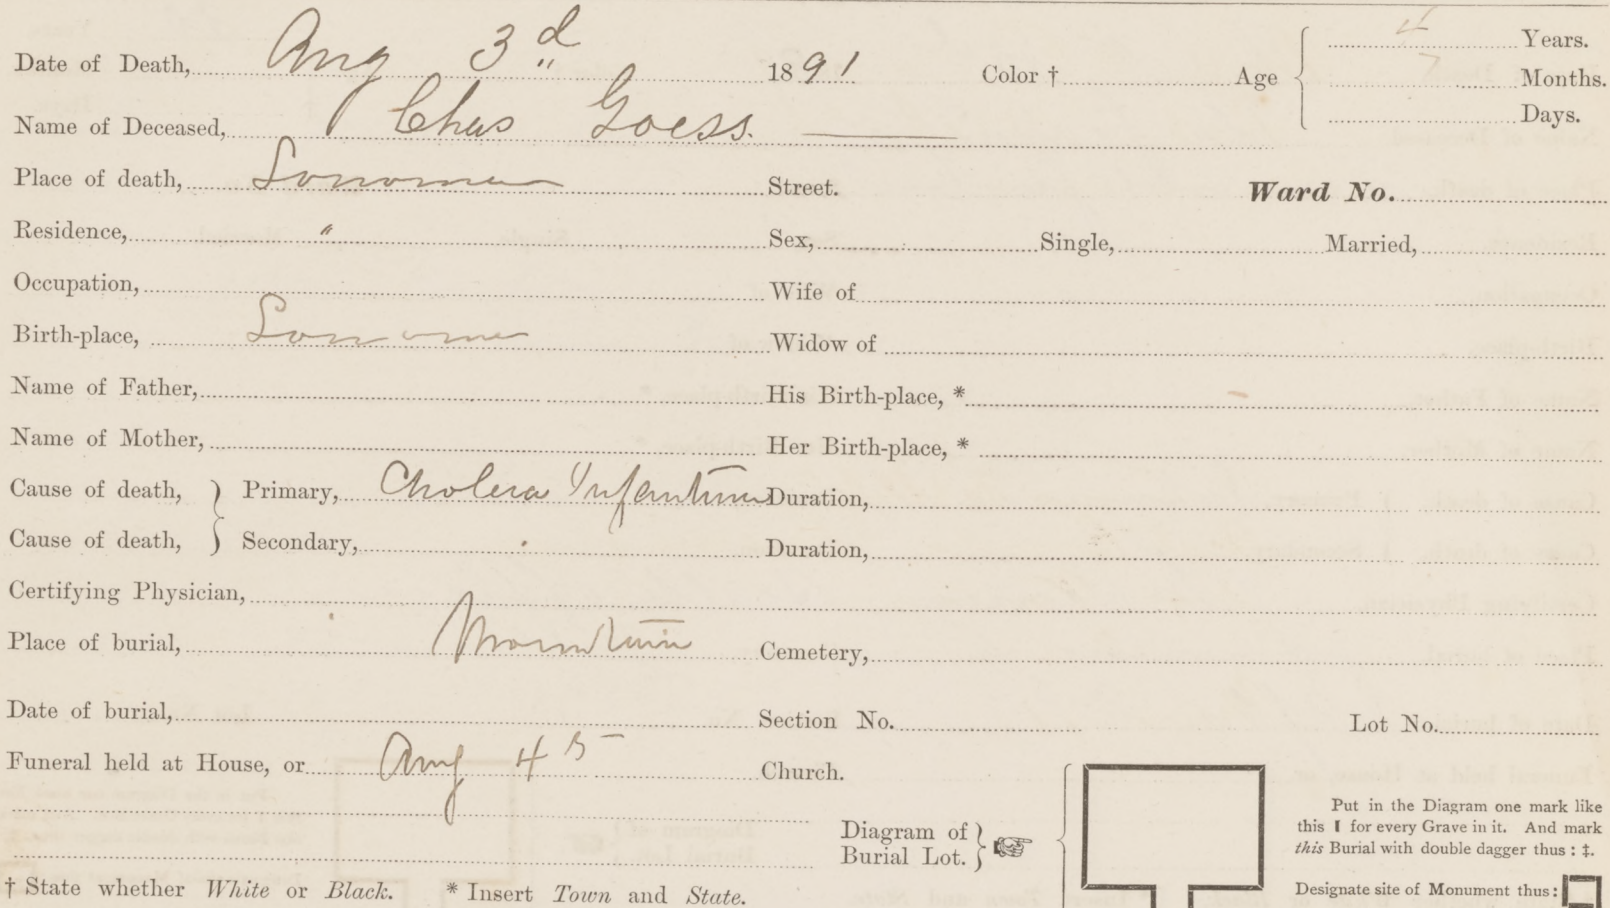 Date of Death, Aug 3d 1891 Color † Age 4 Years.
7 Months.
Name of Deceased, Chas Goess. Days.
Place of death, Sonoma Street. Ward No.
Residence, " Sex, Single, Married,
Occupation, Wife of
Birth-place, Sonoma Widow of
Name of Father, His Birth-place, *
Name of Mother, Her Birth-place, *
Cause of death, } Primary, Cholera Infantum Duration,
Cause of death, } Secondary, Duration,
Certifying Physician,
Place of burial, Mountain Cemetery,
Date of burial, Section No. Lot No.
Funeral held at House, or Aug 4th Church.
Diagram of Burial Lot. }
Put in the Diagram one mark like
this I for every Grave in it. And mark
this Burial with double dagger thus : ‡.
Designate site of Monument thus :
† State whether White or Black. * Insert Town and State.